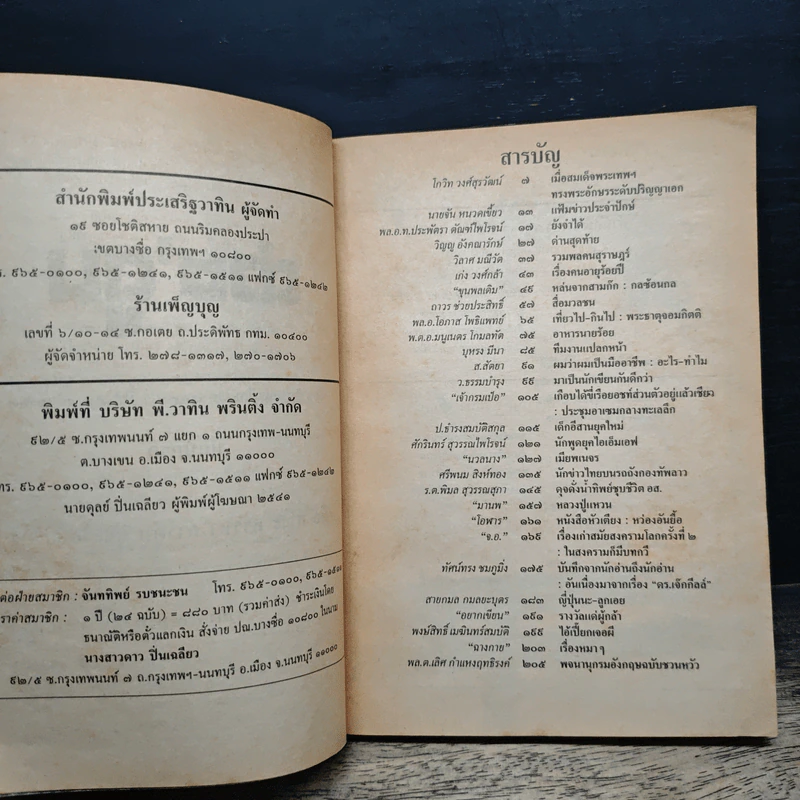 สำนักพิมพ์ประเสริฐวาทิน ผู้จัดทำ
๑๙ ซอยโชติสหาย ถนนริมคลองประปา
เขตบางซื่อ กรุงเทพฯ ๑๐๘๐๐
๙๖๕-๐๑๐๐, ๙๖๕-๑๒๔๑, ๙๖๕-๑๕๑๑ แฟกซ์ ๙๖๕-๑๒๔๒
ร้านเพ็ญบุญ
เลขที่ ๖/๑๐-๑๔ ซ.กอเตย ถ.ประดิพัทธ กทม. ๑๐๔๐๐
ผู้จัดจำหน่าย โทร. ๒๗๘-๑๓๑๗, ๒๗๐-๑๗๐๖
พิมพ์ที่ บริษัท พี.วาทิน พรินติ้ง จำกัด
๙๒/๕ ซ.กรุงเทพนนท์ ๗ แยก ๑ ถนนกรุงเทพ-นนทบุรี
ต.บางเขน อ.เมือง จ.นนทบุรี ๑๑๐๐๐
โทร. ๙๖๕-๐๑๐๐, ๙๖๕-๑๒๔๑, ๙๖๕-๑๕๑๑ แฟกซ์ ๙๖๕-๑๒๔๒
นายดุลย์ ปิ่นเฉลียว ผู้พิมพ์ผู้โฆษณา ๒๕๔๑
ต่อฝ่ายสมาชิก : จันททิพย์ รบชนะชน โทร. ๙๖๕-๐๑๐๐, ๙๖๕-๑๕๑๑
ราคาสมาชิก : ๑ ปี (๒๔ ฉบับ) = ๘๘๐ บาท (รวมค่าส่ง) ชำระเงินโดย
ธนาณัติหรือตั๋วแลกเงิน สั่งจ่าย ปณ.บางซื่อ ๑๐๘๐๐ ในนาม
นางสาวดาว ปิ่นเฉลียว
๙๒/๕ ซ.กรุงเทพนนท์ ๗ ถ.กรุงเทพฯ-นนทบุรี อ.เมือง จ.นนทบุรี ๑๑๐๐๐
สารบัญ
โกวิท วงศ์สุรวัฒน์ ๗ เมื่อสมเด็จพระเทพฯ
ทรงพระอักษรระดับปริญญาเอก
นายจัน หนวดเขี้ยว ๑๓ แฟ้มข่าวประจำปักษ์
พล.อ.ท.ประพัตรา ตัณฑ์ไพโรจน์ ๑๗ ยังจำได้
วิญญู อังคณารักษ์ ๒๗ ด่านสุดท้าย
วิลาศ มณีวัต ๓๗ รวมพลคนสุราษฎร์
เก่ง วงศ์กล้า ๔๓ เรื่องคนอายุร้อยปี
"ขุนพลเติม" ๔๙ หล่นจากสามก๊ก : กลซ้อนกล
ถาวร ช่วยประสิทธิ์ ๕๗ สื่อมวลชน
พล.อ.โอภาส โพธิแพทย์ ๖๕ เที่ยวไป-กินไป : พระธาตุจอมกิตติ
พ.ต.อ.มนูเนตร โกมลทัต ๗๕ อาหารนายร้อย
บุหรง มีนา ๘๕ ทีมงานแปลกหน้า
ส.สัตยา ๙๑ ผมว่าผมเป็นมืออาชีพ : อะไร-ทำไม
ว.ธรรมบำรุง ๙๙ มาเป็นนักเขียนกันดีกว่า
"เจ้ากรมเป๋อ" ๑๐๕ เกือบได้ขี่เรือยอชท์ส่วนตัวอยู่แล้วเชียว
: ประชุมอาเซมกลางทะเลลึก
ป.ธำรงสมบัติสกุล ๑๑๕ เด็กอีสานยุคใหม่
ศักรินทร์ สุวรรณไพโรจน์ ๑๒๑ นักพูดยุคไอเอ็มเอฟ
"นวลนาง" ๑๒๗ เมียพเนจร
ศรีพนม สิงห์ทอง ๑๓๕ นักข่าวไทยบนรถถังกองทัพลาว
ร.ต.พิมล สุวรรณสุภา ๑๔๕ ดุจดั่งน้ำทิพย์ชุบชีวิต อส.
"มานพ" ๑๕๗ หลวงปู่แหวน
"โอฬาร" ๑๖๑ หนังสือหัวเตียง : หว่องอันยื้อ
"จ.อ." ๑๖๙ เรื่องเก่าสมัยสงครามโลกครั้งที่ ๒
: ในสงครามก็มีบทกวี
ทัศน์ทรง ชมภูมิ่ง ๑๗๕ บันทึกจากนักอ่านถึงนักอ่าน
: อันเนื่องมาจากเรื่อง "ดร.เจ๊กกีลล์"
สายกมล กมลยะบุตร ๑๘๓ ญี่ปุ่นนะ-ลูกเอย
"อยากเขียน" ๑๙๑ รางวัลแด่ผู้กล้า
พงษ์สิทธิ์ เมฆินทร์สมบัติ ๑๙๙ ไอ้เปี๊ยกเจอผี
"ฉางกาย" ๒๐๓ เรื่องหมาๆ
พล.ต.เลิศ กำแหงฤทธิรงค์ ๒๐๕ พจนานุกรมอังกฤษฉบับชวนหัว